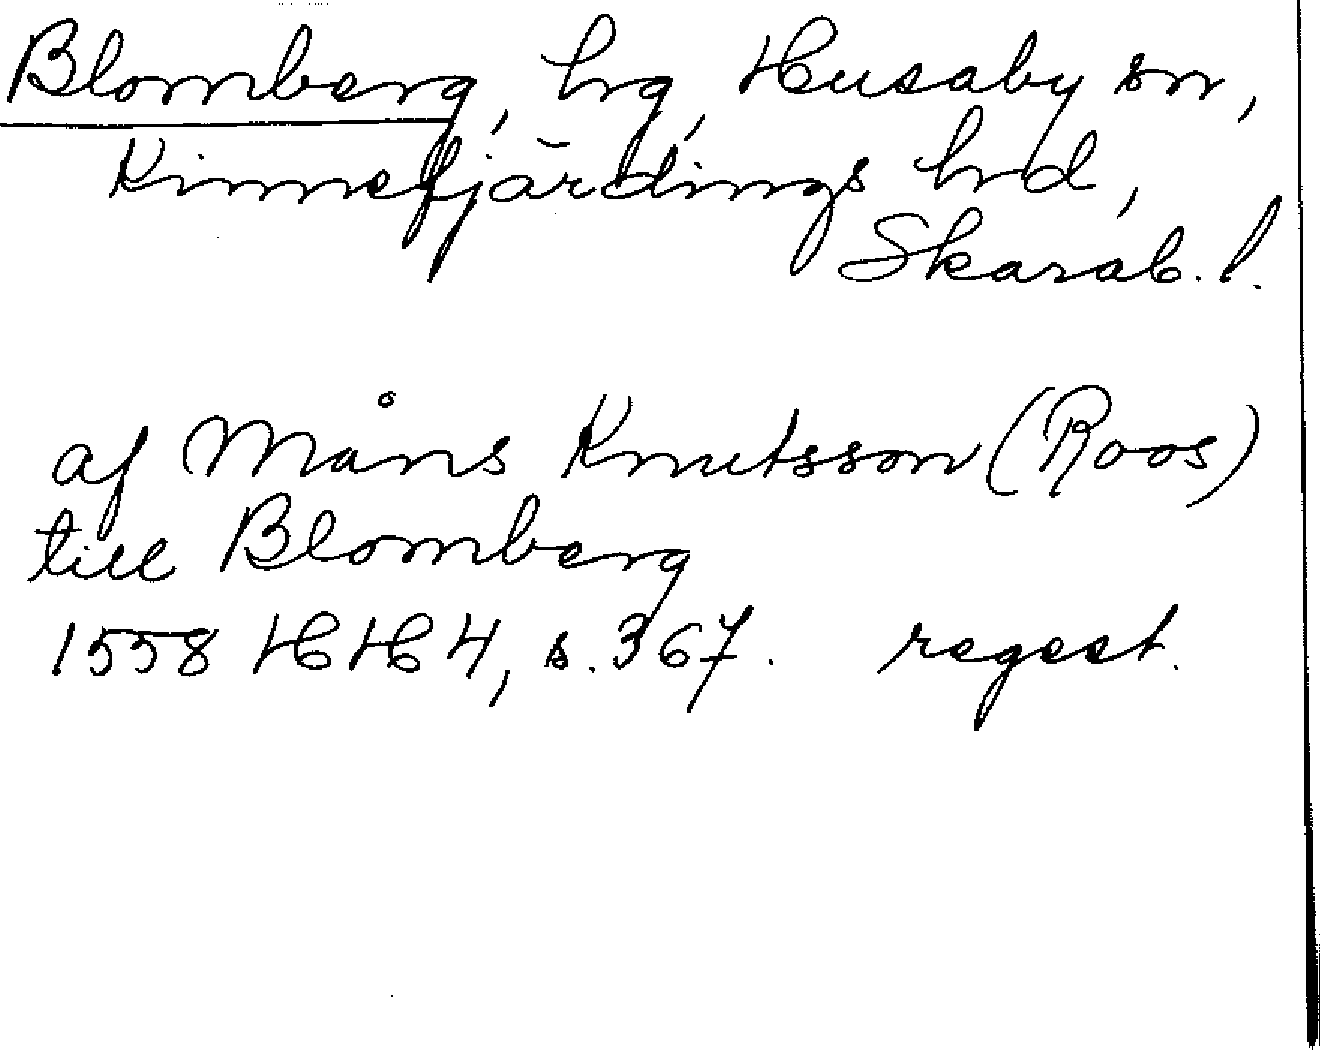 Blomberg, hg, Husaby sn,
Kinnefjärdings hrd,
Skarab. l.
af Måns Knutsson (Roos)
till Blomberg
1558 HH 4, s. 367. regest.